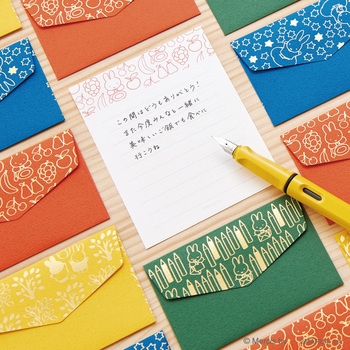 この間はどうもありがとう!
また今度みんなと一緒に
美味しいご飯でも食べに
行こうね